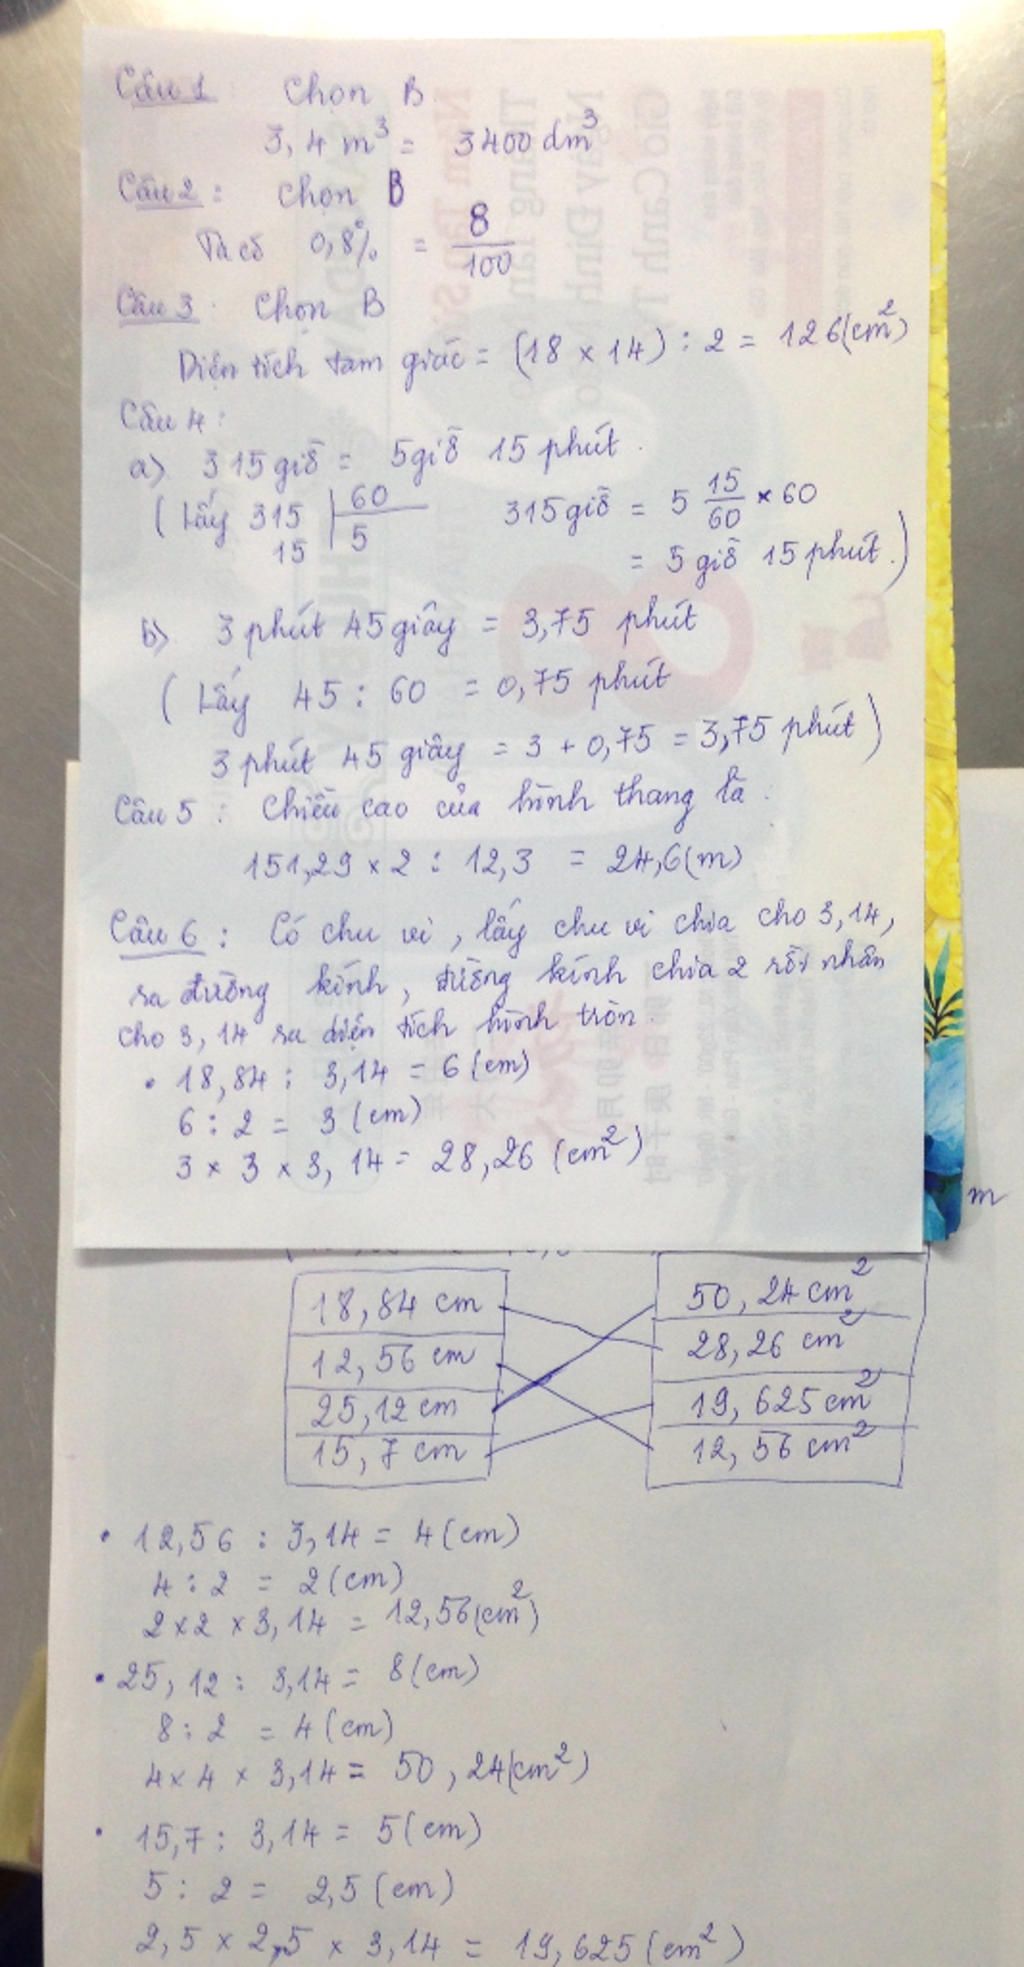 Câu 1 Chọn B
3,4 m³ = 3400 dm³
Câu 2 : Chọn B
Ta có 0,8% = 8/100
Câu 3 Chọn B
Diện tích tam giác = (18 × 14) : 2 = 126(cm²)
Câu 4 :
a) 315 giờ = 5 giờ 15 phút.
(Lấy 315 | 60 315 giờ = 5 15/60 × 60
15 | 5 = 5 giờ 15 phút.)
b) 3 phút 45 giây = 3,75 phút
(Lấy 45 : 60 = 0,75 phút
3 phút 45 giây = 3 + 0,75 = 3,75 phút)
Câu 5 : Chiều cao của hình thang là :
151,29 × 2 : 12,3 = 24,6(m)
Câu 6 : Có chu vi, lấy chu vi chia cho 3,14,
ra đường kính, đường kính chia 2 rồi nhân
cho 3,14 ra diện tích hình tròn.
• 18,84 : 3,14 = 6 (cm)
6 : 2 = 3 (cm)
3 × 3 × 3,14 = 28,26 (cm²)
m
18,84 cm 50,24 cm²
12,56 cm 28,26 cm²
25,12 cm 19,625 cm²
15,7 cm 12,56 cm²
• 12,56 : 3,14 = 4 (cm)
4 : 2 = 2 (cm)
2 × 2 × 3,14 = 12,56(cm²)
• 25,12 : 3,14 = 8 (cm)
8 : 2 = 4 (cm)
4 × 4 × 3,14 = 50,24(cm²)
• 15,7 : 3,14 = 5 (cm)
5 : 2 = 2,5 (cm)
2,5 × 2,5 × 3,14 = 19,625 (cm²)